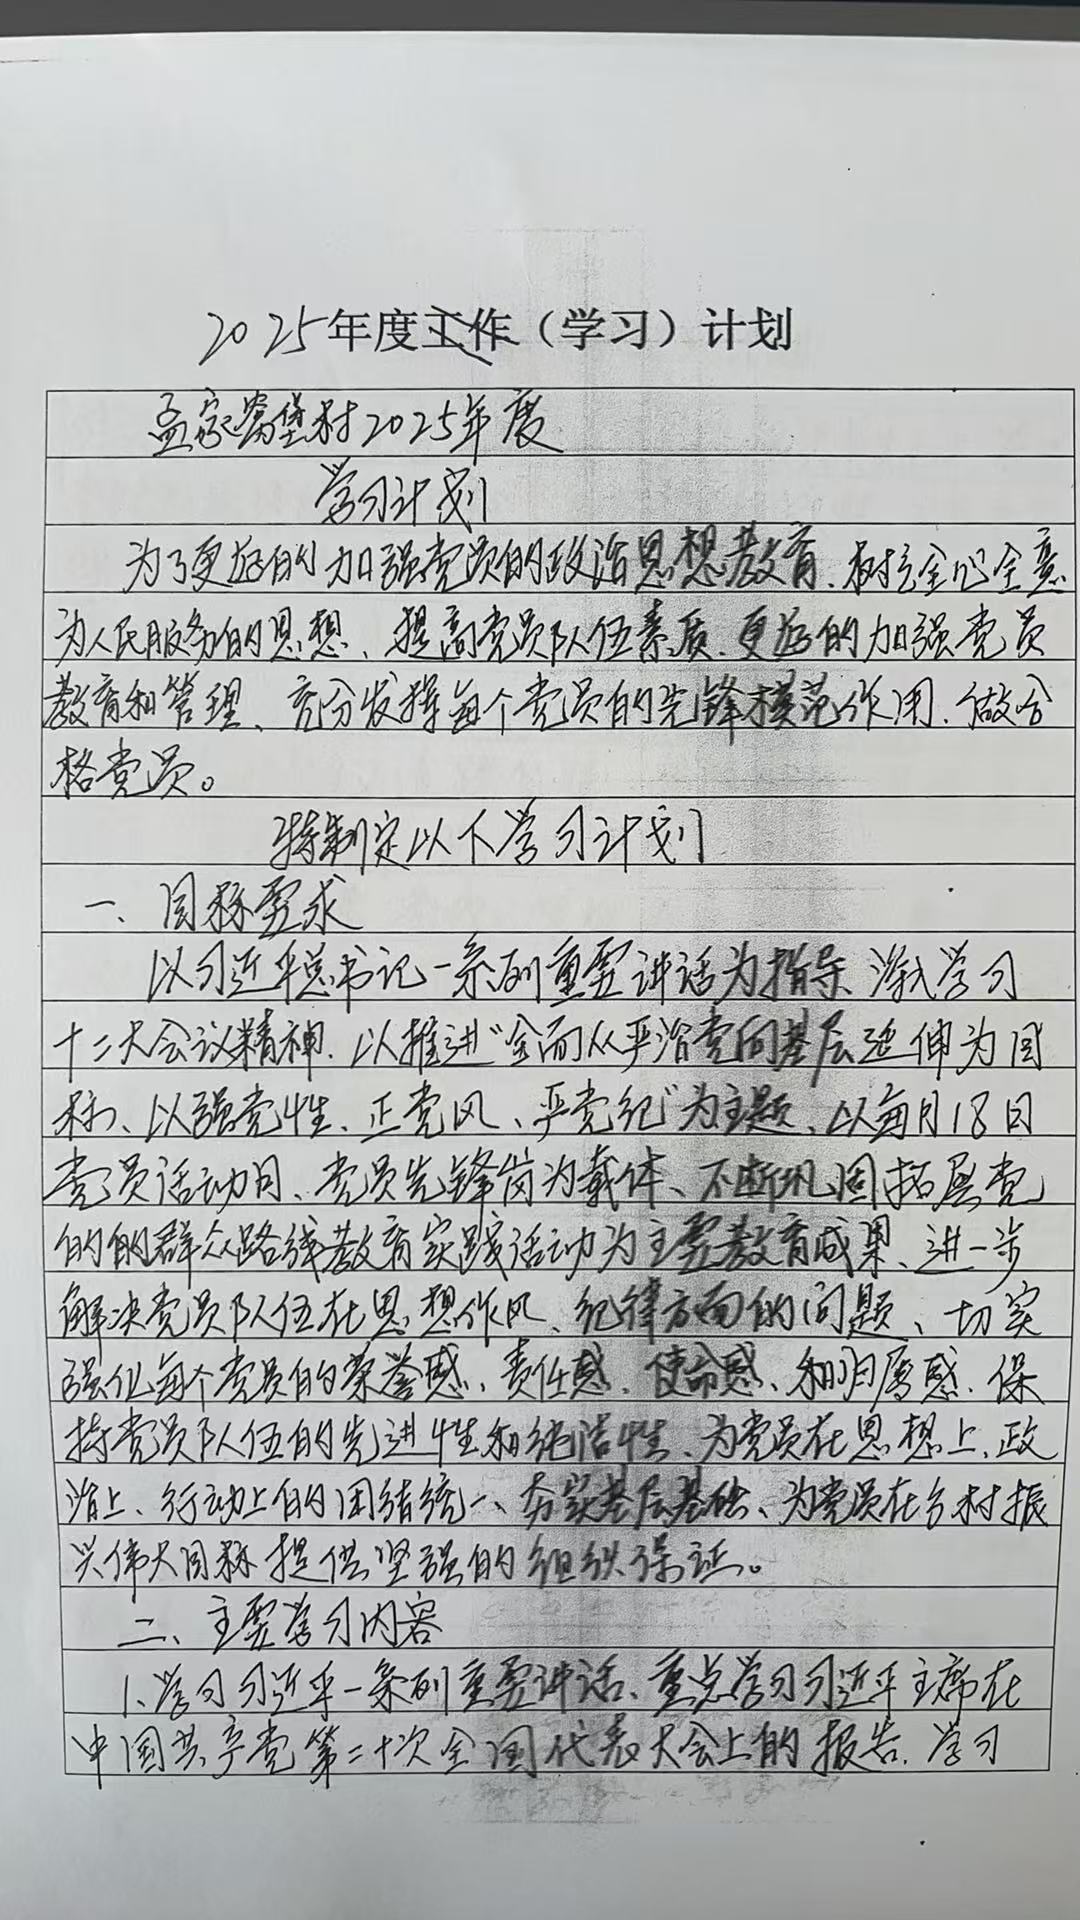 2025年度工作（学习）计划
孟家窝堡村2025年度
学习计划
为了更好的加强党员的政治思想教育、树立全心全意
为人民服务的思想、提高党员队伍素质、更好的加强党员
教育和管理、充分发挥每个党员的先锋模范作用、做合
格党员。
特制定以下学习计划
一、目标要求
以习近平总书记一系列重要讲话为指导、深入学习
十二大会议精神、以推进“全面从严治党向基层延伸为目
标、以强党性、正党风、严党纪”为主题、以每月18日
党员活动日、党员先锋岗为载体、不断巩固拓展党
的的群众路线教育实践活动为主要教育成果、进一步
解决党员队伍在思想作风、纪律方面的问题、切实
强化每个党员的荣誉感、责任感、使命感、和归属感、保
持党员队伍的先进性和纯洁性、为党员在思想上、政
治上、行动上的团结统一、夯实基层基础、为党员在乡村振
兴伟大目标提供坚强的组织保证。
二、主要学习内容
1、学习习近平一系列重要讲话、重点学习习近平主席在
中国共产党第二十次全国代表大会上的报告、学习